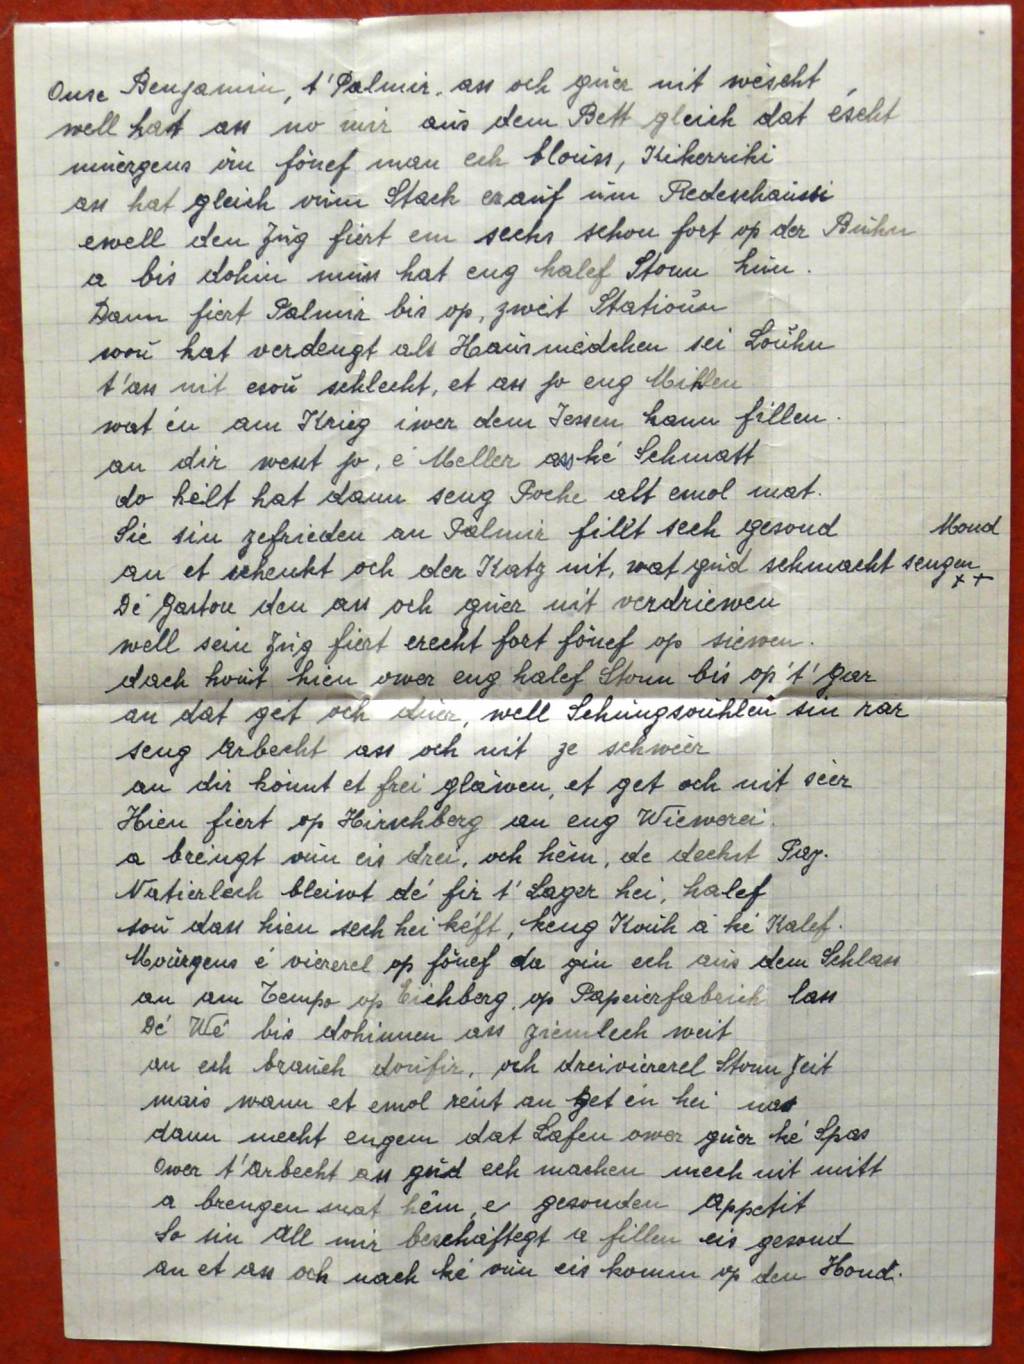 Onse Benjamin, t'Palmir, ass och guer nit wéscht
well hatt ass no mir aus dem Bett gleich dat éscht
muergens ün fönef man ech blouss, Kikerriki
ass hat gleich vum Stack erauf um Redeschaussi
ewell den Zug fiert em sechs schon fort op der Buhn
a bis dohin muss hat eng halef Stonn hun.
Dann fiert Palmir bis op, zwét Statioun
wou hat verdengt als Hausmedchen sei Louhn
t'ass nit esou schlecht, et ass jo eng Millen
wat én am Krieg iwer dem Iessen kann fillen.
an dir weset jo, é Meller ass ké Schmatt
do hélt hat dann seng Poche alt emol mat.
Sie sin zefrieden an Palmir fillt sech gesond
an et schenkt och der Katz nit, wat gud schmacht sengem Mond
x +
Dé Gaston den ass och guer nit verdriewen
well sein Zug fiert erecht fort fönef op siewen.
dach hout hien ower eng halef Stonn bis op't'gar
an dat get och duer, well Schungsouhlen sin rar
seng Arbecht ass och nit ze schwéer
an dir könnt et frei gläwen, et get och nit séer
Hien fiert op Hirschberg an eng Wiewerei.
a bréngt vun eis drei, och hém, de dechst Pay.
Natierlech bleiwt dé fir t'Lager hei, halef
sou dass hien sech hei kéft, keng Kouh a ké Kalef.
Mourgens é viererel op fönef da gin ech aus dem Schlass
an am Tempo op Eichberg, op Papeierfabrick lass
Dé Wé bis dohinnen ass ziemlech weit
an ech brauch doufir, och dreiviererel Stonn Zeit
mais wann et emol rént an get én hei nass
dann mecht engem dat Lafen ower guer ké Spas
Ower t'Arbecht ass gud ech machen mech nit mitt
a brengen mat hém, e gesonden Appetit
So sin All mir beschäftegt a fillen eis gesond
an et ass och nach ké vun eis komm op den Hond.